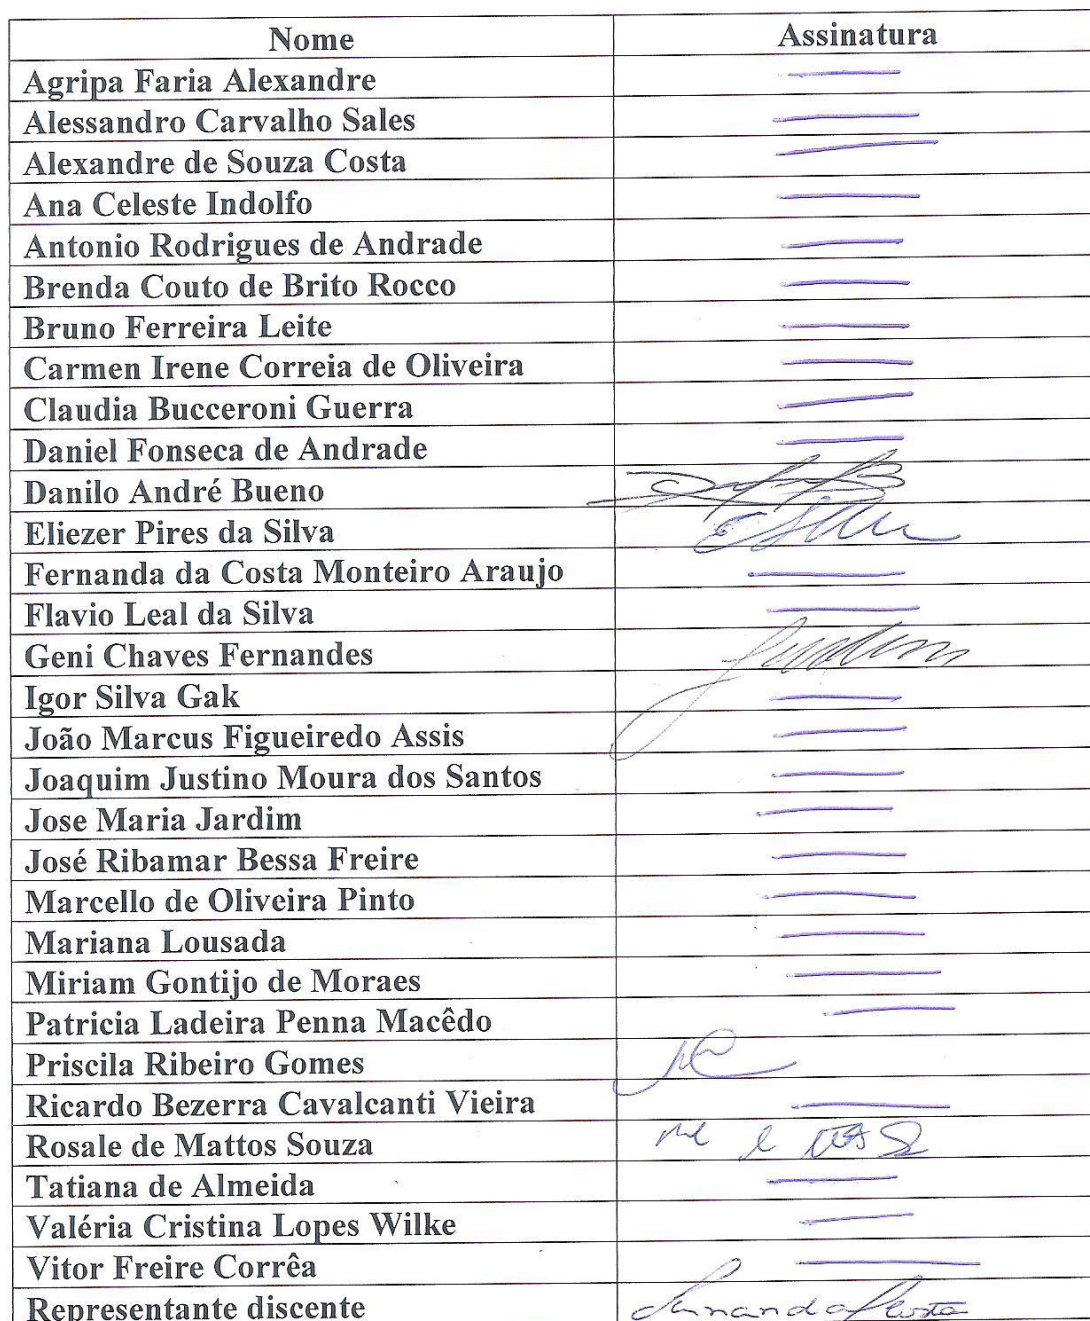 Nome Assinatura
Agripa Faria Alexandre
Alessandro Carvalho Sales
Alexandre de Souza Costa
Ana Celeste Indolfo
Antonio Rodrigues de Andrade
Brenda Couto de Brito Rocco
Bruno Ferreira Leite
Carmen Irene Correia de Oliveira
Claudia Bucceroni Guerra
Daniel Fonseca de Andrade
Danilo André Bueno
Eliezer Pires da Silva
Fernanda da Costa Monteiro Araujo
Flavio Leal da Silva
Geni Chaves Fernandes
Igor Silva Gak
João Marcus Figueiredo Assis
Joaquim Justino Moura dos Santos
Jose Maria Jardim
José Ribamar Bessa Freire
Marcello de Oliveira Pinto
Mariana Lousada
Miriam Gontijo de Moraes
Patricia Ladeira Penna Macêdo
Priscila Ribeiro Gomes
Ricardo Bezerra Cavalcanti Vieira
Rosale de Mattos Souza
Tatiana de Almeida
Valéria Cristina Lopes Wilke
Vitor Freire Corrêa
Representante discente